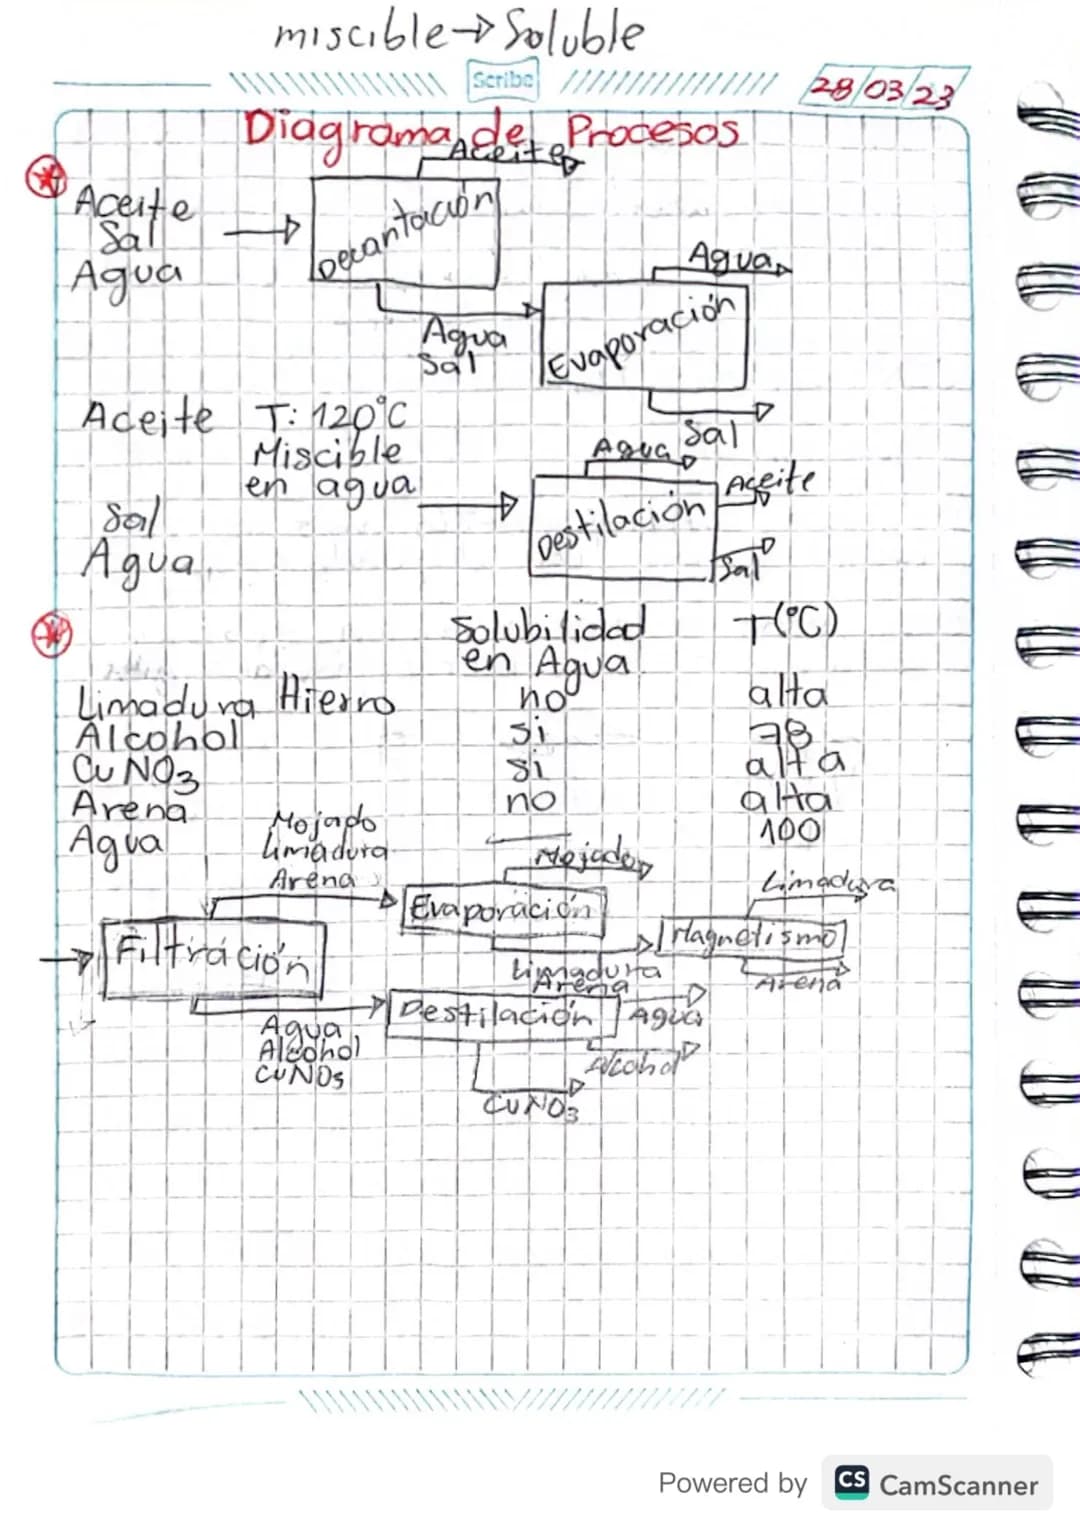 miscible→Soluble
Scribe
28/03/23
Diagrama de Procesos
Aceite
Aceite
Sal
Agua
Decantación
Agua
Agua
Sal
Evaporación
Sal
Aceite T: 120°C
Miscible
en agua
Sal
Agua
Agua
Destilación
Aceite
Sal
Solubilidad T(°C)
en Agua
Limadura Hierro no alta
Alcohol si 78
CuNO3 si alta
Arena no alta
Agua 100
Mojado
Limadura
Arena
Mojado
Evaporación
Limadura
Filtración
Magnetismo
Limadura
Arena
Arena
Destilación
Agua
Agua
Alcohol
CuNO3
Alcohol
CuNO3
Powered by CS CamScanner